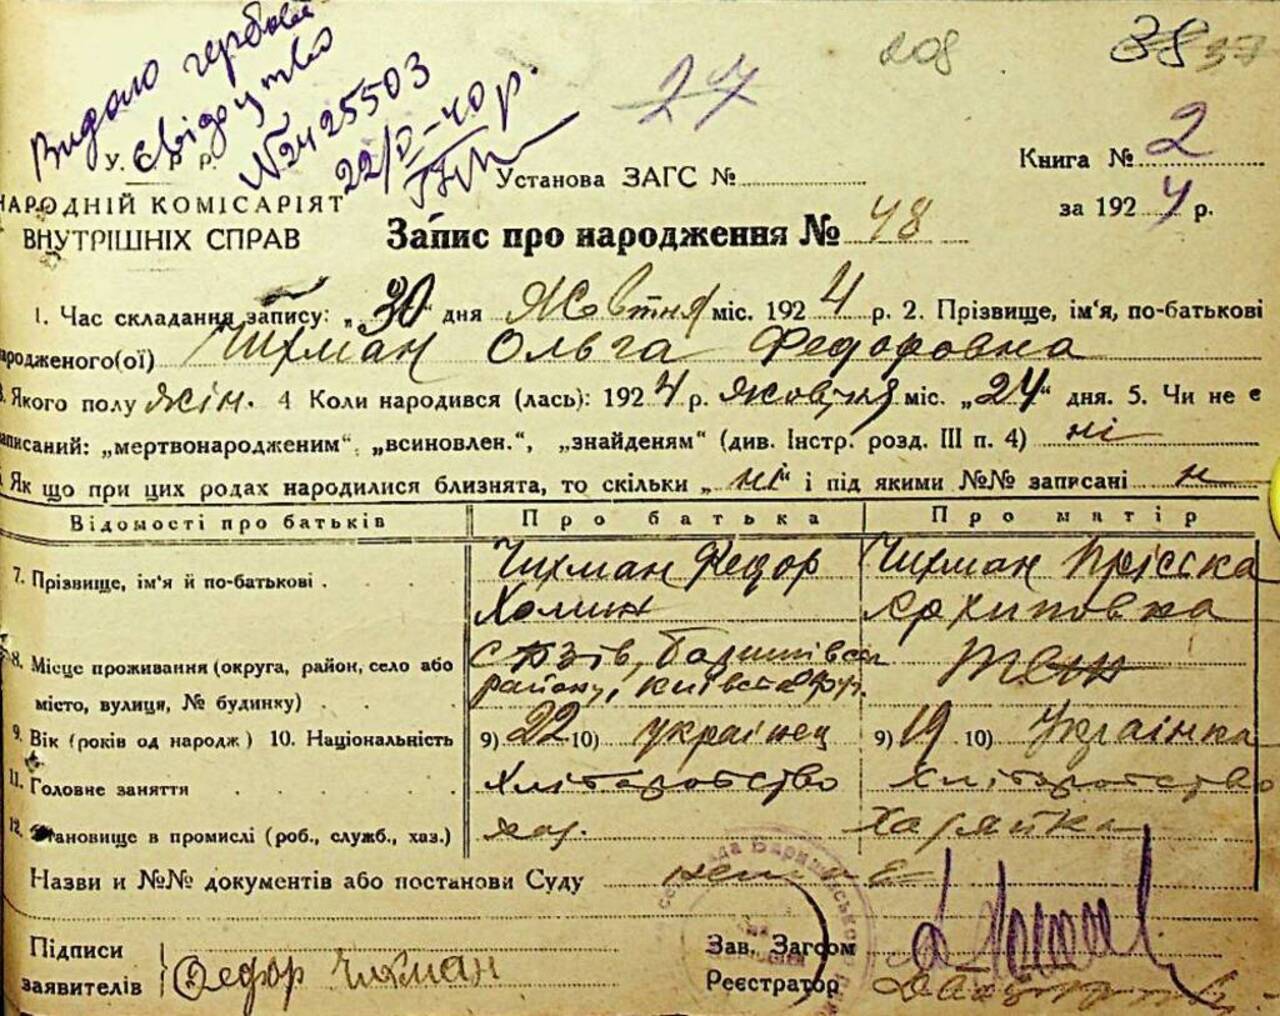 Видано гербове
свідоцтво
№ 2425503
22/ -40 р.
27
208
38 37
У. Р. Р.
НАРОДНІЙ КОМІСАРІЯТ
ВНУТРІШНІХ СПРАВ
Установа ЗАГС №
Книга № 2
за 1924 р.
Запис про народження № 48
1. Час складання запису: „30" дня Жовтня міс. 1924 р. 2. Прізвище, ім'я, по-батькові
народженого(ої) Чихман Ольга Федоровна
3. Якого полу жін. 4 Коли народився (лась): 1924 р. жовтня міс. „24" дня. 5. Чи не є
записаний: „мертвонародженим", „всиновлен.", „знайденям" (див. Інстр. розд. III п. 4) ні
Як що при цих родах народилися близнята, то скільки „ні і під якими №№ записані н
Відомості про батьків Про батька Про матір
7. Прізвище, ім'я й по-батькові Чихман Федор Чихман Пріська
Хомич Архиповна
8. Місце проживання (округа, район, село або місто, вулиця, № будинку)
Баришівськ
району, Київськ
9. Вік (років од народж) 10. Національність 9) 22 10) українец 9) 19 10) Українка
11. Головне заняття Хліборобство Хліборобство
12. Становище в промислі (роб., служб., хаз.) хаз. Хазяйка
Назви и №№ документів або постанови Суду немає
Підписи
заявителів Федор Чихман
Зав. Загсом
Реєстратор